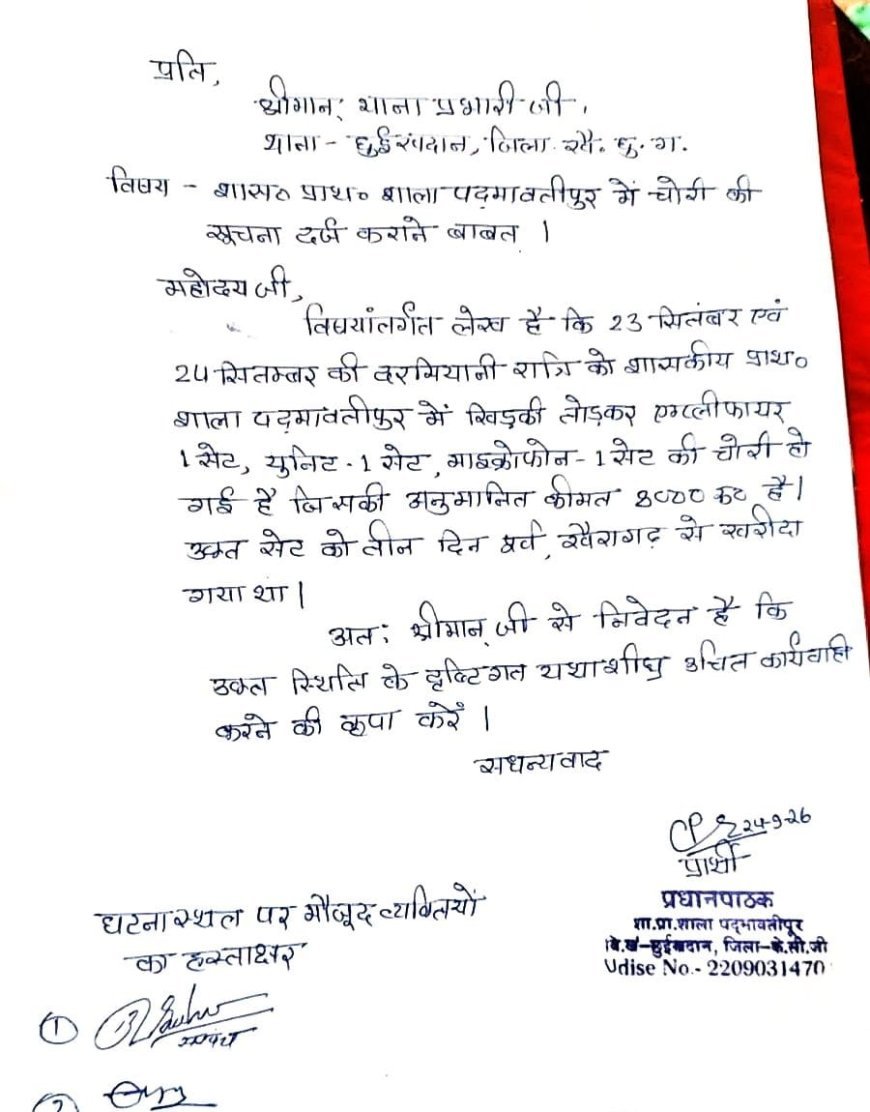 प्रति,
श्रीमान् थाना प्रभारी जी,
थाना - छुईखदान, जिला. खै. छु. ग.
विषय - शास० प्राथ० शाला पद्मावतीपुर में चोरी की
सूचना दर्ज कराने बाबत ।
महोदय जी,
विषयांतर्गत लेख है कि 23 सितंबर एवं
24 सितम्बर की दरमियानी रात्रि को शासकीय प्राथ०
शाला पद्मावतीपुर में खिड़की तोड़कर एम्प्लीफायर
1 सेट, युनिट - 1 सेट, माइक्रोफोन - 1 सेट की चोरी हो
गई है जिसकी अनुमानित कीमत 8000 रू० है।
उक्त सेट को तीन दिन पूर्व, खैरागढ़ से खरीदा
गया था।
अतः श्रीमान् जी से निवेदन है कि
उक्त स्थिति के दृष्टिगत यथाशीघ्र उचित कार्यवाही
करने की कृपा करें ।
सधन्यवाद
24-9-26
प्रार्थी
प्रधानपाठक
शा.प्रा.शाला पद्मावतीपुर
वि.खं-छुईखदान, जिला-के.सी.जी
Udise No.- 2209031470
घटना स्थल पर मौजूद व्यक्तियों
का हस्ताक्षर
①
सरपंच
②